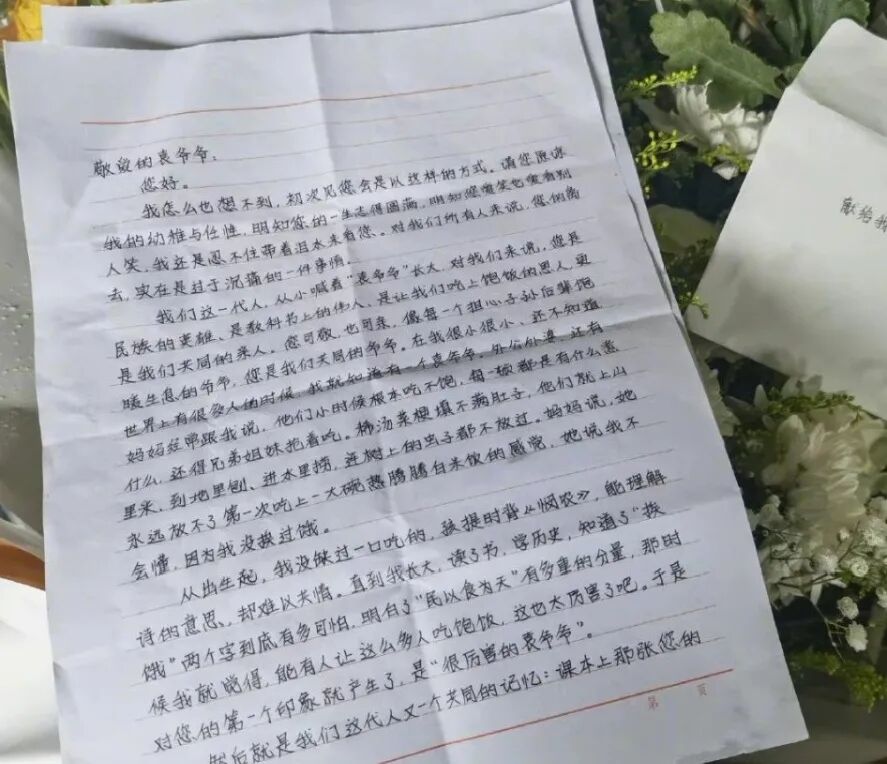 敬爱的袁爷爷：
您好。
我怎么也想不到，初次见您会是以这样的方式。请您原谅
我的幼稚与任性，明知您的一生志得圆满，明知您爱笑也爱看别
人笑，我还是忍不住带着泪水来看您。对我们所有人来说，您的离
去，实在是过于沉痛的一件事情。
我们这一代人，从小喊着“袁爷爷”长大，对我们来说，您是
民族的英雄、是教科书上的伟人、是让我们吃上饱饭的恩人，更
是我们共同的亲人。您可敬、也可亲，像每一个担心子孙后辈饱
暖生息的爷爷，您是我们共同的爷爷。在我很小很小、还不知道
世界上有很多人的时候，我就知道有一个袁爷爷。外公外婆、还有
妈妈经常跟我说，他们小时候根本吃不饱，每一顿都是有什么盖
什么，还得兄弟姐妹抢着吃。稀汤菜梗填不满肚子，他们就上山
里采，到地里刨、进水里捞，连树上的虫子都不放过。妈妈说，她
永远放不了第一次吃上一大碗热腾腾白米饭的感觉，她说我不
会懂，因为我没挨过饿。
从出生起，我没缺过一口吃的，孩提时背《悯农》，能理解
诗的意思，却难以共情。直到我长大，读了书，学历史，知道了“挨
饿”两个字到底有多可怕，明白了“民以食为天”有多重的分量，那时
候我就觉得，能有人让这么多人吃饱饭，这也太厉害了吧。于是
对您的第一个印象就产生了，是“很厉害的袁爷爷”。
然后就是我们这代人又一个共同的记忆：课本上那张您的
第 页
献给我